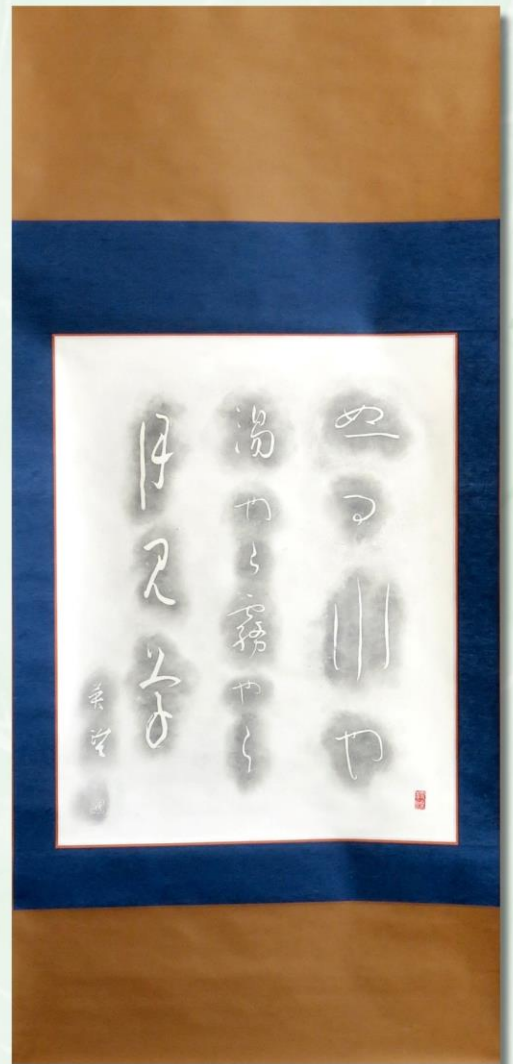 ぬる川や
湯やら霧やら
月見草